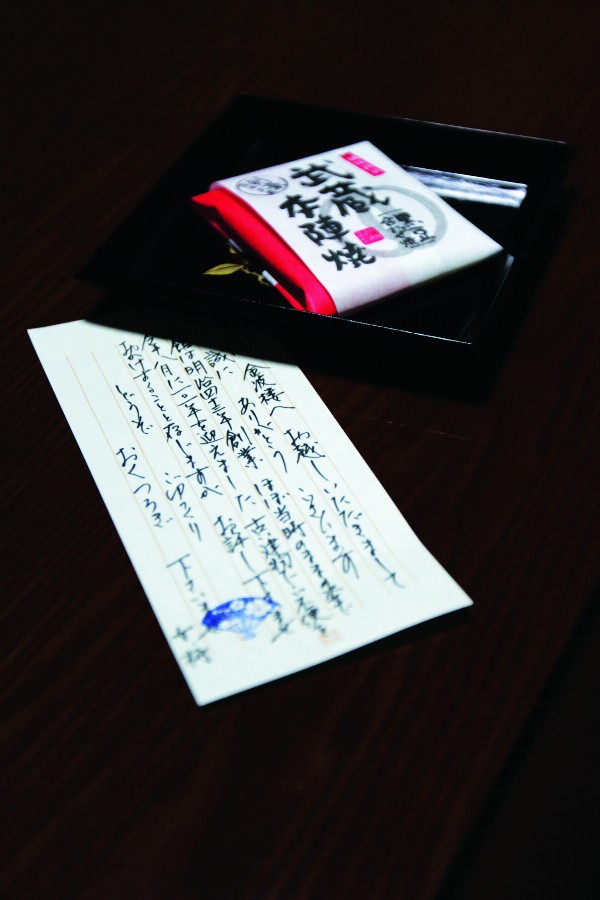 武蔵
本陣焼
金波楼へ お越しいただきまして
誠に ありがとう ございます
館は明治四十三年創業 ほぼ当時のまま
年八月に 年を迎えました 古い建物でご不便を
おかけすることと存じますが お許し下さいませ
どうぞ ごゆっくり おくつろぎ 下さいませ
女将